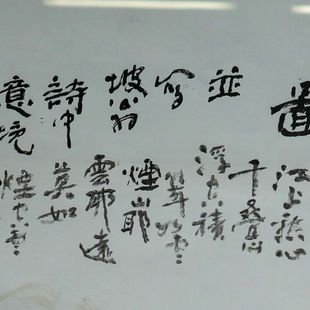 圖
並
寫
坡翁
詩中
意境
江上愁心
千疊山
浮空積
翠如雲
煙山耶
雲耶遠
莫如
煙空雲